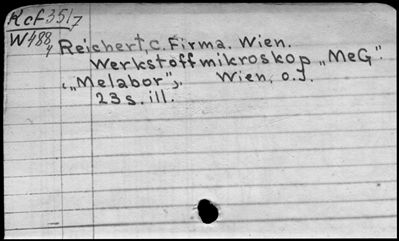 Kcf 351/7
W488/4
Reichert, C. Firma. Wien.
Werkstoffmikroskop „MeG".
(„Melabor"). Wien, o.J.
23 s. ill.